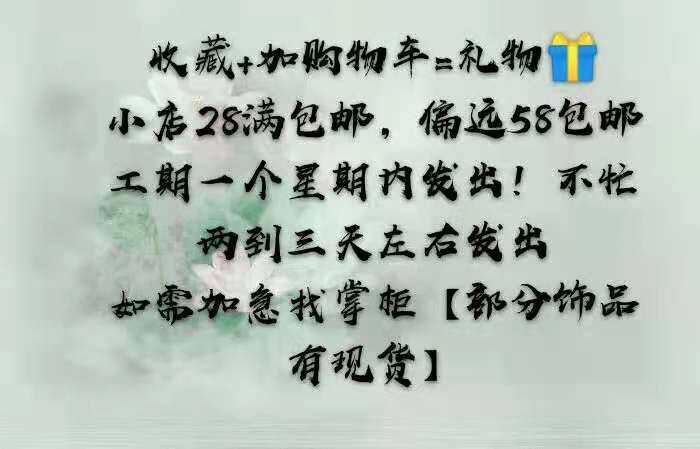 收藏+加购物车=礼物🎁
小店28满包邮，偏远58包邮
工期一个星期内发出！不忙
两到三天左右发出
如需加急找掌柜【部分饰品
有现货】